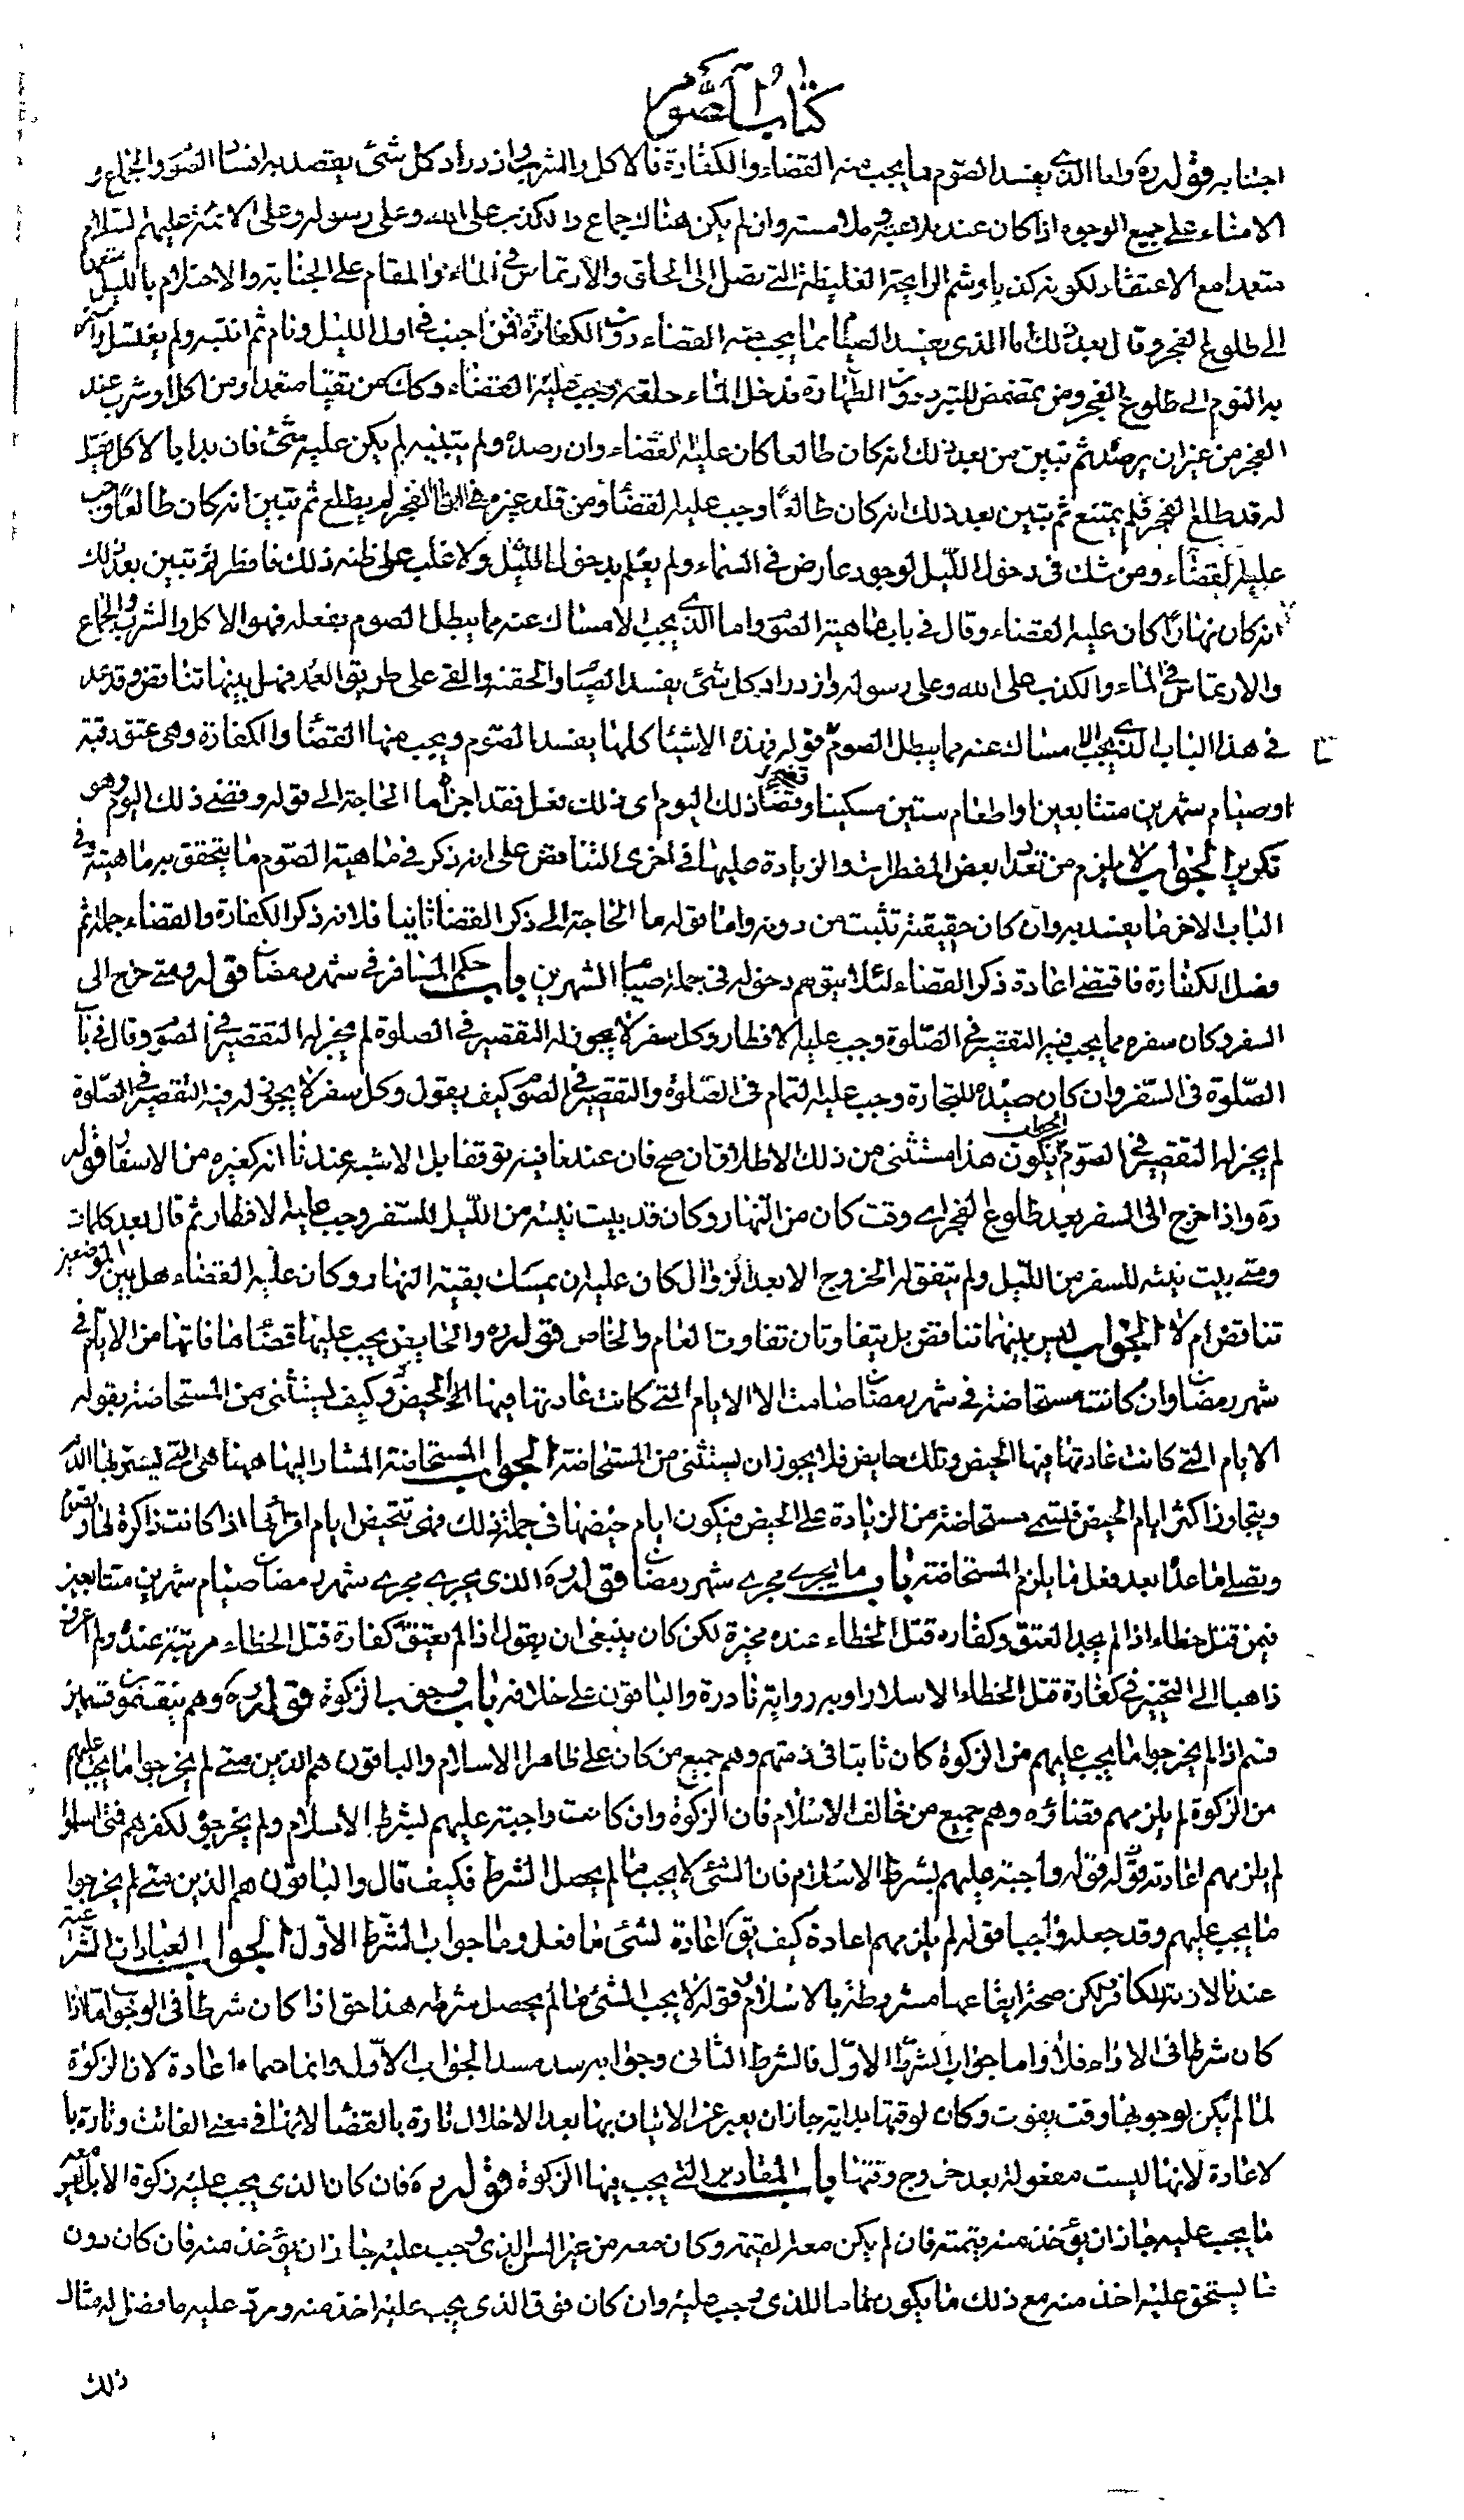 كتاب الصوم
اجتنابه قوله ره واما الذي يفسد الصوم مما يجب منه القضاء والكفارة فالاكل والشرب وازدراد كل شئ يقصد به افساد الصوم والجماع و
الامناء على جميع الوجوه اذا كان عند ملاعبة وملامسة وان لم يكن هناك جماع والكذب على الله وعلى رسوله وعلى الائمة عليهم السلام
متعمدا مع الاعتقاد لكونه كذبا وشم الرايحة الغليظة التي تصل الى الحلق والارتماس في الماء والمقام على الجنابة والاحتلام بالليل متعمدا
الى طلوع الفجر وقال بعد ذلك فاما الذي يفسد الصيام مما يجب منه القضاء دون الكفارة فمن اجنب في اول الليل ونام ثم انتبه ولم يغتسل واستمر
به النوم الى طلوع الفجر ومن تمضمض للتبرد دون الطهارة فدخل الماء حلقه وجب عليه القضاء وكك من تقيأ متعمدا ومن اكل او شرب عند
الفجر من غير ان يرصده ثم تبين من بعد ذلك انه كان طالعا كان عليه القضاء وان رصده ولم يتبينه لم يكن عليه شئ فان بدا بالاكل فقيل
له قد طلع الفجر فلم يمتنع ثم تبين بعد ذلك انه كان طالعا وجب عليه القضاء ومن قلد غيره في ان الفجر لم يطلع ثم تبين انه كان طالعا وجب
عليه القضاء ومن شك في دخول الليل لوجود عارض في السماء ولم يعلم بدخول الليل ولا غلب على ظنه ذلك فافطر ثم تبين بعد ذلك
انه كان نهارا كان عليه القضاء وقال في باب ماهية الصوم واما الذي يجب الامساك عنه مما يبطل الصوم بفعله فهو الاكل والشرب والجماع
والارتماس في الماء والكذب على الله وعلى رسوله وازدراد كل شئ يفسد الصيام والحقنة والقئ على طريق العمد فهل بينها تناقض وقد عد
في هذا الباب الذي يجب الامساك عنه مما يبطل الصوم قوله فهذه الاشياء كلها يفسد الصوم ويجب منها القضاء والكفارة وهي عتق رقبة
او صيام شهرين متتابعين او اطعام ستين مسكينا وقضاء ذلك اليوم اى ذلك فعل فقد اجزأه ما الحاجة الى قوله وقضى ذلك اليوم وهو
تكرير الجواب لا يلزم من تعداد بعض المفطرات والزيادة عليها في اخرى التناقض على انه ذكر في ماهية الصوم ما يتحقق به ماهيته وفي
الباب الاخر ما يفسد به وان كان حقيقته تثبت من دونه واما قوله ما الحاجة الى ذكر القضاء ثانيا فلانه ذكر الكفارة والقضاء جملة ثم
فصل الكفارة فاقتضى اعادة ذكر القضاء لئلا يتوهم دخوله في جملة صيام الشهرين باب حكم المسافر في شهر رمضان قوله ومتى خرج الى
السفر وكان سفره مما يجب فيه التقصير في الصلوة وجب عليه الافطار وكل سفر لا يجوز له التقصير في الصلوة لم يجز له التقصير في الصوم وقال في باب
الصلوة في السفر وان كان صيده للتجارة وجب عليه التمام في الصلوة والتقصير في الصوم كيف يقول وكل سفر لا يجوز له فيه التقصير في الصلوة
لم يجز له التقصير في الصوم الجواب يكون هذا مستثنى من ذلك الاطلاق ان صح فان عندنا فيه توقفا بل الاشبه عندنا انه كغيره من الاسفار قوله
ره واذا خرج الى السفر بعد طلوع الفجر اى وقت كان من النهار وكان قد بيت نيته من الليل للسفر وجب عليه الافطار ثم قال بعد كلمات
ومتى بيت نيته للسفر من الليل ولم يتفق له الخروج الا بعد الزوال كان عليه ان يمسك بقية النهار وكان عليه القضاء هل بين الموضعين
تناقض ام لا الجواب ليس بينهما تناقض بل يتفاوتان تفاوت العام والخاص قوله ره والحايض يجب عليها قضاء ما فاتها من الايام في
شهر رمضان وان كانت مستحاضة في شهر رمضان صامت الا الايام التي كانت عادتها فيها الحيض وكيف يستثنى من المستحاضة بقوله
الايام التي كانت عادتها فيها الحيض وتلك حايض فلا يجوز ان يستثنى من المستحاضة الجواب المستحاضة المشار اليها ههنا هي التي يستمر بها الدم
ويتجاوز اكثر ايام الحيض فتسمى مستحاضة من الزيادة على الحيض فيكون ايام حيضها في جملة ذلك فهي تتحيض ايام اقرائها اذا كانت ذاكرة لها وتصوم
وتصلي ما عدا بعد فعل ما يلزم المستحاضة باب ما يجرى مجرى شهر رمضان قوله ره الذي يجرى مجرى شهر رمضان صيام شهرين متتابعين
فيمن قتل خطاء اذا لم يجد العتق وكفارة قتل الخطاء عنده مخيرة لكن كان ينبغي ان يقول اذا لم يعتق كفارة قتل الخطاء مرتبة عنده ولم اعرف
ذاهبا الى التخيير في كفارة قتل الخطاء الا سلارا وبه رواية نادرة والباقون على خلافه باب وجوب الزكوة قوله ره وهم ينقسمون قسمين
قسم اذا لم يخرجوا ما يجب عليهم من الزكوة كان ثابتا في ذمتهم وهم جميع من كان على ظاهر الاسلام والباقون هم الذين متى لم يخرجوا ما يجب عليهم
من الزكوة لم يلزمهم قضاؤه وهم جميع من خالف الاسلام فان الزكوة وان كانت واجبة عليهم بشرط الاسلام ولم يخرجوها لكفرهم فمتى اسلموا
لم يلزمهم اعادته قوله قوله واجبة عليهم بشرط الاسلام فان الشئ لا يجب ما لم يحصل الشرط فكيف قال والباقون هم الذين متى لم يخرجوا
ما يجب عليهم وقد جعله واجبا قوله لم يلزمهم اعادة كيف يق اعادة لشئ ما فعل وما جواب الشرط الاول الجواب العبادات الشرعية
عندنا لازمة للكافر لكن صحة ايقاعها مشروطة بالاسلام قوله لا يجب الشئ ما لم يحصل شرطه هذا حق اذا كان شرطا في الوجوب اما اذا
كان شرطا في الاداء فلا واما جواب الشرط الاول فالشرط الثاني وجوابه يسد مسد الجواب الاول وانما سماه اعادة لان الزكوة
لما لم يكن لوجوبها وقت يفوت وكان لوقتها بداية جاز ان يعبر عن الاتيان بها بعد الاخلال تارة بالقضاء لانها في معنى الفائت وتارة با
لاعادة لانها ليست مفعولة بعد خروج وقتها باب المقادير التي يجب فيها الزكوة قوله ره فان كان الذي يجب عليه زكوة الابل ليس معه
ما يجب عليه جاز ان يؤخذ منه قيمته فان لم يكن معه القيمة وكان معه من غير السن الذي وجب عليه جاز ان يؤخذ منه فان كان دون
ما يستحق عليه اخذ منه مع ذلك ما يكون تماما للذي وجب عليه وان كان فوق الذي يجب عليه اخذ منه ورد عليه ما فضل له مثال
ذلك